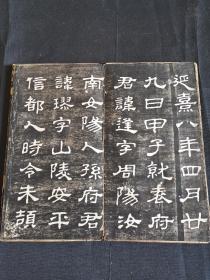 延熹八年四月廿
九日甲子就袁府
君諱逢字周陽汝
南女陽人孫府君
諱璆字山陵安平
信都人時令朱頡